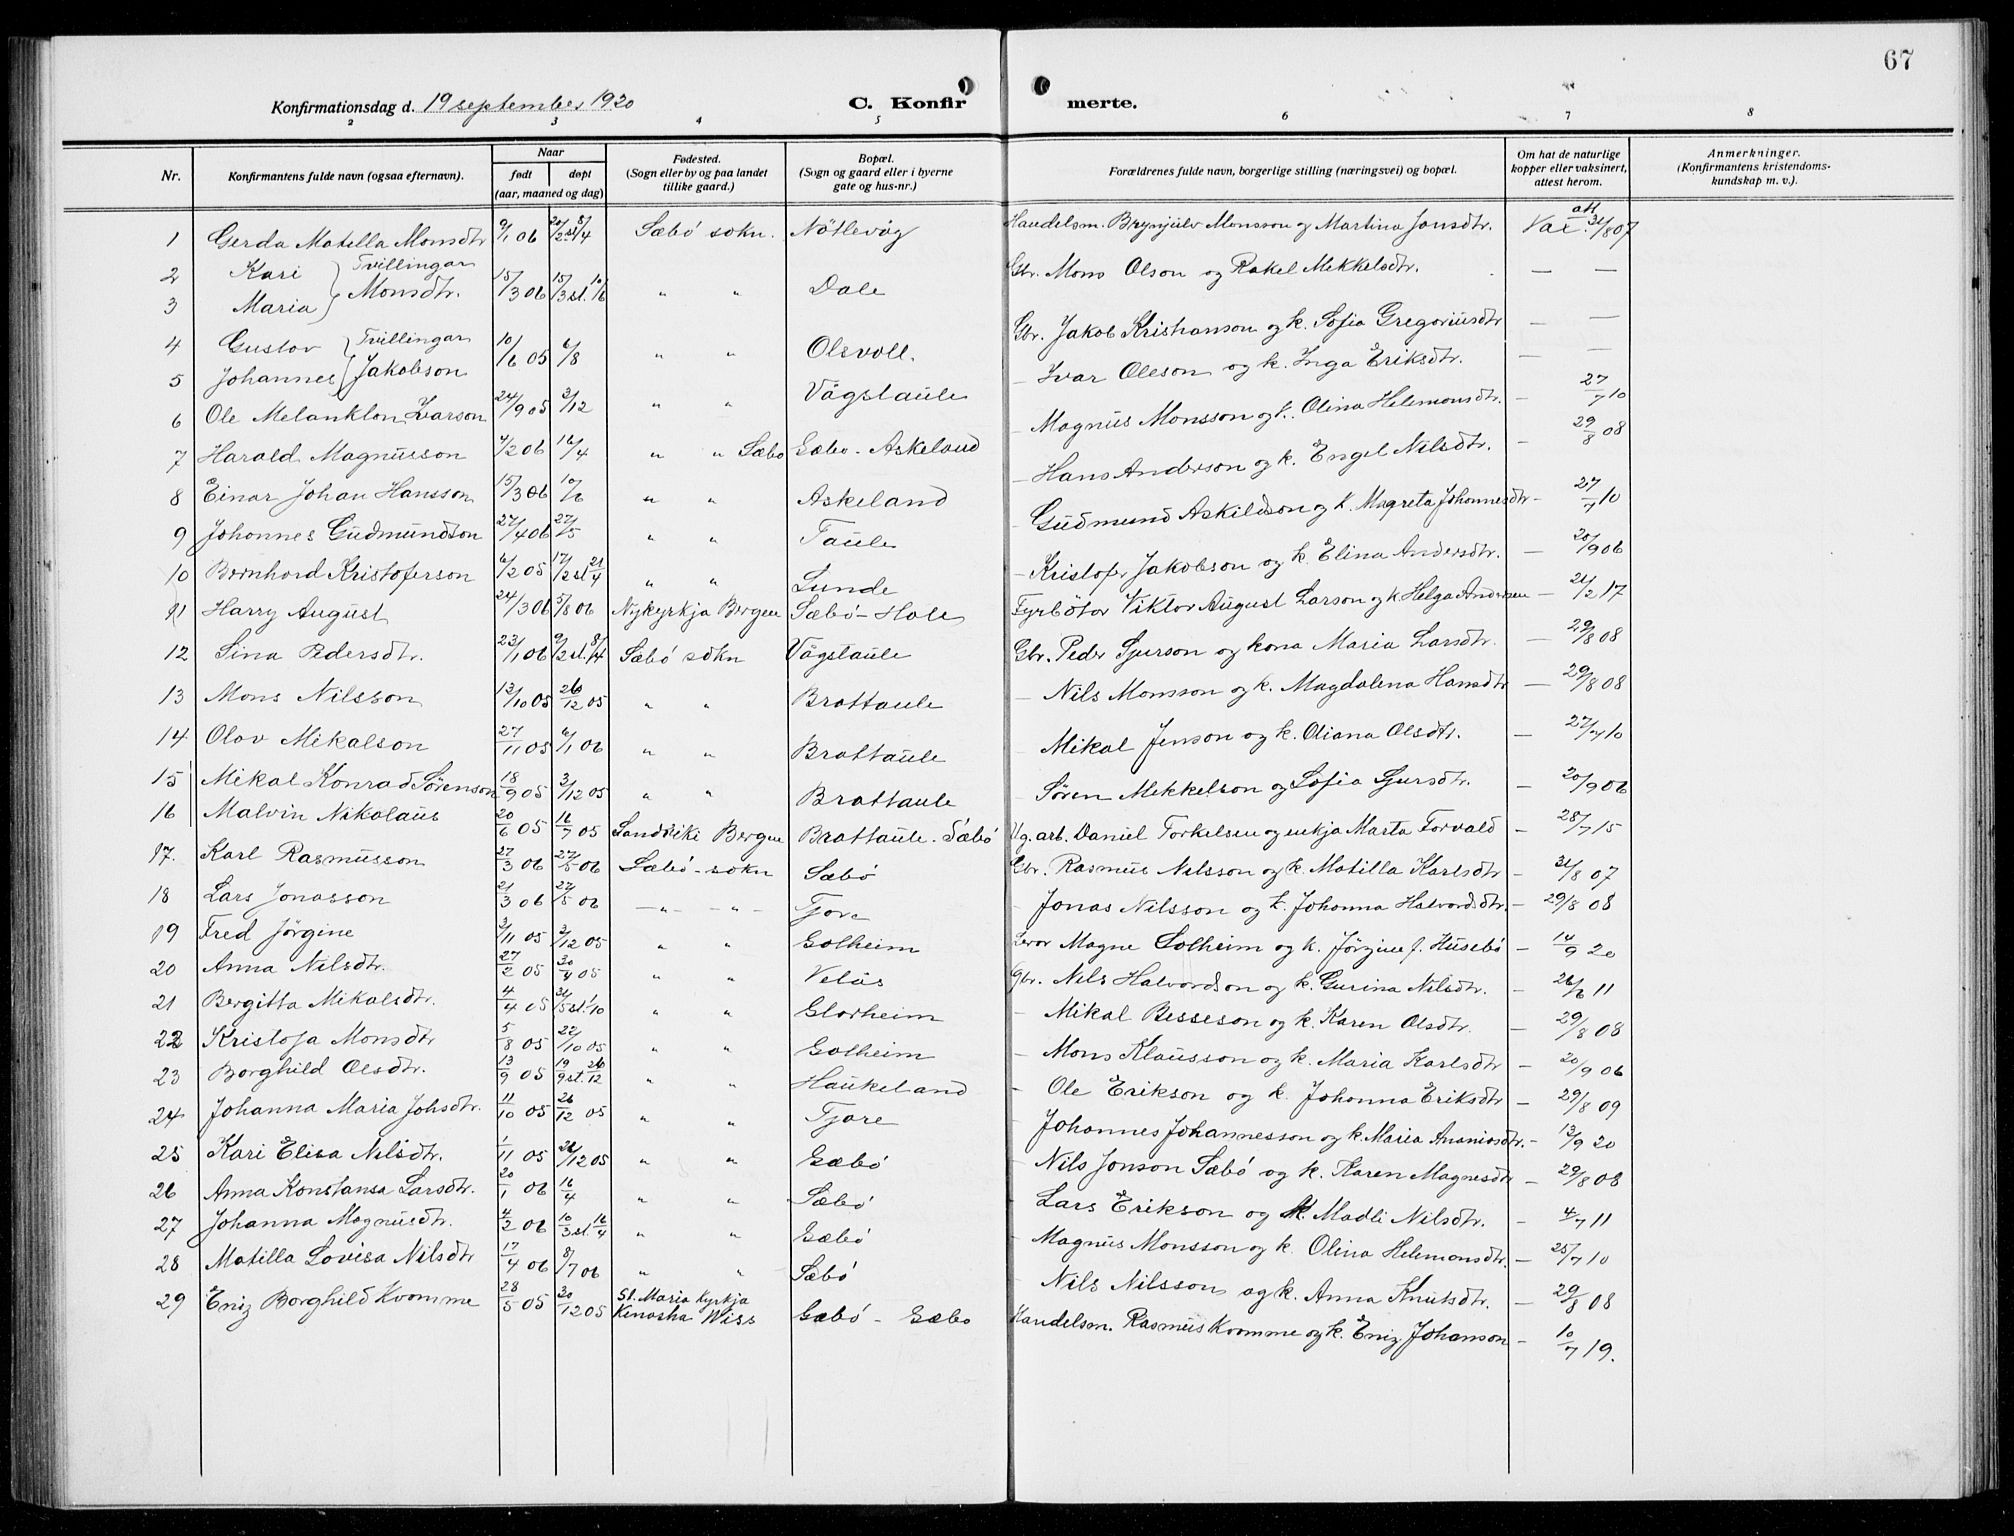 67
Konfirmationsdag d. 19 september 1920 C. Konfir merte.
2 3 4 5 6 7 8
Nr. Konfirmantens fulde navn (ogsaa efternavn). Naar født døpt (aar, maaned og dag) Fødested. (Sogn eller by og paa landet tillike gaard.) Bopæl. (Sogn og gaard eller i byerne gate og hus-nr.) Forældrenes fulde navn, borgerlige stilling (næringsvei) og bopæl. Om hat de naturlige kopper eller vaksinert, attest herom. Anmerkninger. (Konfirmantens kristendomskundskap m. v.).
1 Gerda Matilla Monsdtr 9/1 06 20/2 st 8/4 Sæbö sokn. Nötlevåg Handelsm. Brynjulv Monsson og Martina Jonsdtr. Vac. att 31/8 07
2 Kari } Tvillingar
3 Maria } Monsdtr. 15/3 06 15/3 st. 10/6 " " Dale Gbr. Mons Olson og Rakel Mekkelsdtr. — —
4 Gustov } Tvillingar
5 Johannes } Jakobson 10/6 05 6/8 " " Olsvoll. Gbr. Jakob Kristianson og k. Sofia Gregoriusdtr — —
6 Ole Melankton Ivarson 24/9 05 3/12 " " Vågstaule — Ivar Oleson og k. Inga Eriksdtr. — —
7 Harald Magnusson 4/2 06 16/4 " " Sæbö Sæbö - Askeland — Magnus Monsson og k. Olina Helemonsdtr. — 27/7 10
8 Einar Johan Hansson 15/3 06 10/6 " " Askeland — Hans Anderson og k. Engel Nilsdtr. — 29/8 08
9 Johannes Gudmundson 27/4 06 27/5 " " Taule — Gudmund Askildson og k. Magreta Johannesdtr — 27/7 10
10 Bernhard Kristoferson 6/2 05 17/2 st 21/4 " " Lunde — Kristofer Jakobson og k. Elina Andersdtr. — 20/9 06
11 Harry August 24/3 06 5/8 06 Nykyrkja Bergen Sæbö - Hole Fyrbötar Viktor August Larson og k Helga Andersen — 21/2 17
12 Sina Pedersdtr. 23/1 06 9/2 st. 8/4 Sæbö sokn Vågstaule Gbr. Peder Sjurson og kona Maria Larsdtr. — 29/8 08
13 Mons Nilsson 13/10 05 26/12 05 " " Brattaule — Nils Monsson og k. Magdalena Hansdtr — 29/8 08
14 Olav Mikalson 27/11 05 6/1 06 " " Brattaule — Mikal Jenson og k. Oliana Olsdtr. — 27/7 10
15 Mikal Konrad Sørenson 18/9 05 3/12 05 " " Brattaule — Søren Mekkelson og Sofia Sjursdtr. — 20/9 06
16 Malvin Nikolaus 20/6 05 16/7 05 Sandviki Bergen Brattaule - Sæbö Ug. arb. Daniel Torkelsen og enkja Marta Torvald — 28/7 15
17. Karl Rasmusson 27/3 06 27/5 06 Sæbö - sokn Sæbö Gbr. Rasmus Nilsson og k. Matilla Karlsdtr — 31/8 07
18 Lars Jonasson 21/3 06 27/5 06 — " — " — Tjore — Jonas Nilsson og k. Johanna Halvordsdtr. — 29/8 08
19 Fred Jörgine 2/11 05 3/12 05 " " Solheim Lærar Magne Solheim og k. Jörgine f. Husebö — 14/9 20
20 Anna Nilsdtr. 27/2 05 30/4 05 " " Velås Gbr. Nils Halvordson og k. Gurina Nilsdtr. — 26/6 11
21 Bergitta Mikalsdtr. 4/4 05 21/5 st. 1/10 " " Glorheim — Mikal Besseson og k. Karen Olsdtr. — 29/8 08
22 Kristofa Monsdtr 5/8 05 22/10 05 " " Solheim — Mons Klausson og k. Maria Karlsdtr — 20/9 06
23 Borghild Olsdtr. 13/9 05 19/9 st. 26/12 " " Haukeland — Ole Erikson og k. Johanna Eriksdtr — 29/8 09
24 Johanna Maria Johsdtr. 11/10 05 26/12 05 " " Tjore — Johannes Johannesson og k. Maria Ananiasdtr. — 13/9 20
25 Kari Elisa Nilsdtr. 1/11 05 26/12 05 " " Sæbö — Nils Jonson Sæbö og k. Karen Magnesdtr — 29/8 08
26 Anna Konstansa Larsdtr. 20/1 06 16/4 " " Sæbö — Lars Erikson og k. Madli Nilsdtr. — 4/7 11
27 Johanna Magnusdtr. 4/2 06 10/3 st. 16/4 " " Sæbö — Magnus Monsson og k. Olina Helemonsdtr — 25/7 10
28 Matilla Lovisa Nilsdtr 17/4 06 8/7 06 " " Sæbö — Nils Nilsson og k. Anna Knutsdtr. — 29/8 08
29 Eniz Borghild Kvamme 28/5 05 30/12 05 St. Maria Kyrkja Kenosha Wiss Sæbö - Sæbö Handelsm. Rasmus Kvamme og k. Eniz Johanson — 10/7 19.